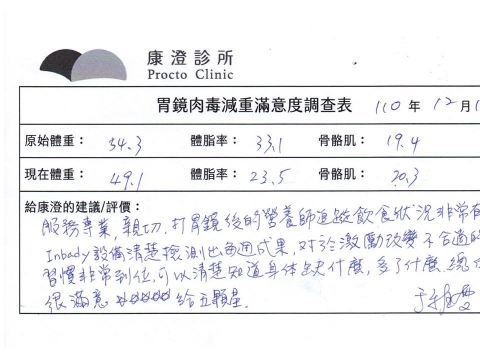 康澄診所
Procto Clinic
胃鏡肉毒減重滿意度調查表 110 年 12 月
原始體重： 54.3 體脂率： 33.1 骨骼肌： 19.4
現在體重： 49.1 體脂率： 23.5 骨骼肌： 20.3
給康澄的建議/評價：
服務專業，親切，打胃鏡後的營養師追蹤飲食狀況非常有
Inbady 設備清楚檢測出每週成果，對於激勵改變不合適的
習慣非常到位，可以清楚知道身体缺什麼，多了什麼，總
很滿意 ☆☆☆☆☆ 給五顆星.